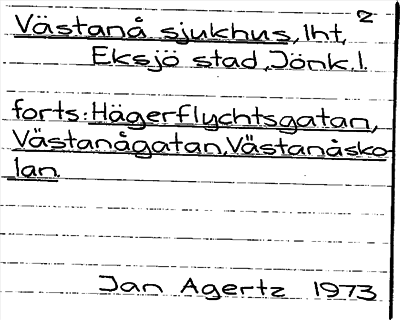 2
Västanå sjukhus, lht,
Eksjö stad, Jönk.l.
forts: Hägerflychtsgatan,
Västanågatan, Västanåsko-
lan.
Jan Agertz 1973